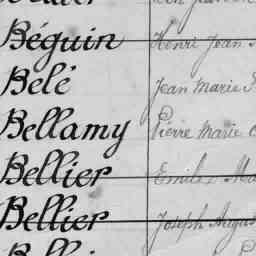 Béguin Henri Jean
Bélé Jean Marie
Bellamy Pierre Marie
Bellier Emile
Bellier Joseph